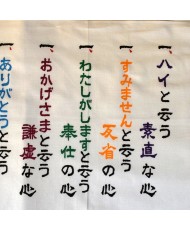 一、ハイと云う
素直な心
一、すみませんと云う
反省の心
一、わたしがしますと云う
奉仕の心
一、おかげさまと云う
謙虚な心
一、ありがとうと云う